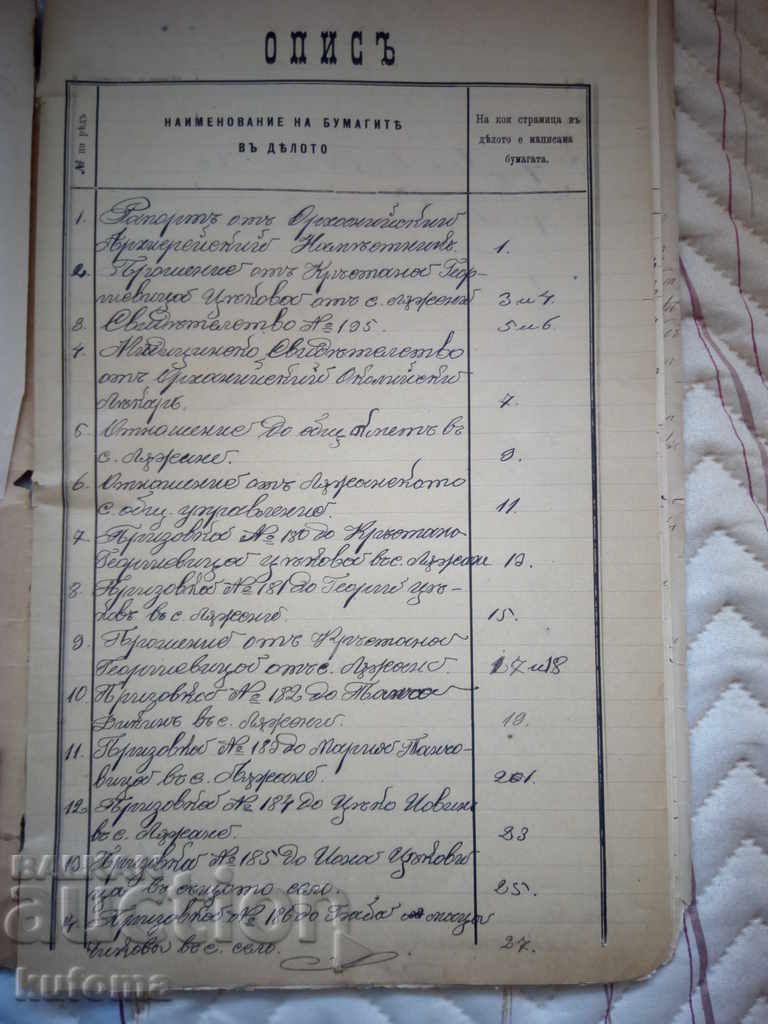 ОПИСЪ
№ по редъ
НАИМЕНОВАНИЕ НА БУМАГИТѢ
ВЪ ДѢЛОТО
На коя страница въ
дѣлото е написана
бумагата.
1. Рапортъ отъ Орханийский
Архиерейский Намѣстникъ. 1.
2. Прошение отъ Кръстана Геор-
гиевица Цѣкова отъ с. Лѫжене 3 и 4.
3. Свидѣтелство № 195. 5 и 6.
4. Медицинско Свидѣтелство
отъ Орханийский Околийски
Лѣкарь. 7.
5. Отношение до общ. Кметъ въ
с. Лѫжане. 9.
6. Отношение отъ Лѫжанското
с. общ. управление. 11.
7. Призовка № 180 до Кръстана
Георгиевица Цѣкова въ с. Лѫжани 13.
8. Призовка № 181 до Георги Цѣ-
ковъ въ с. Лѫжене. 15.
9. Прошение отъ Кръстана
Георгиевица отъ с. Лѫжане. 17 и 18
10. Призовка № 182 до
въ с. Лѫжене. 19.
11. Призовка № 183 до Мария Танчо-
вица въ с. Лѫжане. 21.
12. Призовка № 184 до Цѣко
въ с. Лѫжане. 23
13. Призовка № 185 до Цѣкови
ца въ сѫщото село. 25.
14. Призовка № 186 до
въ с. село. 27.
auction
kutoma